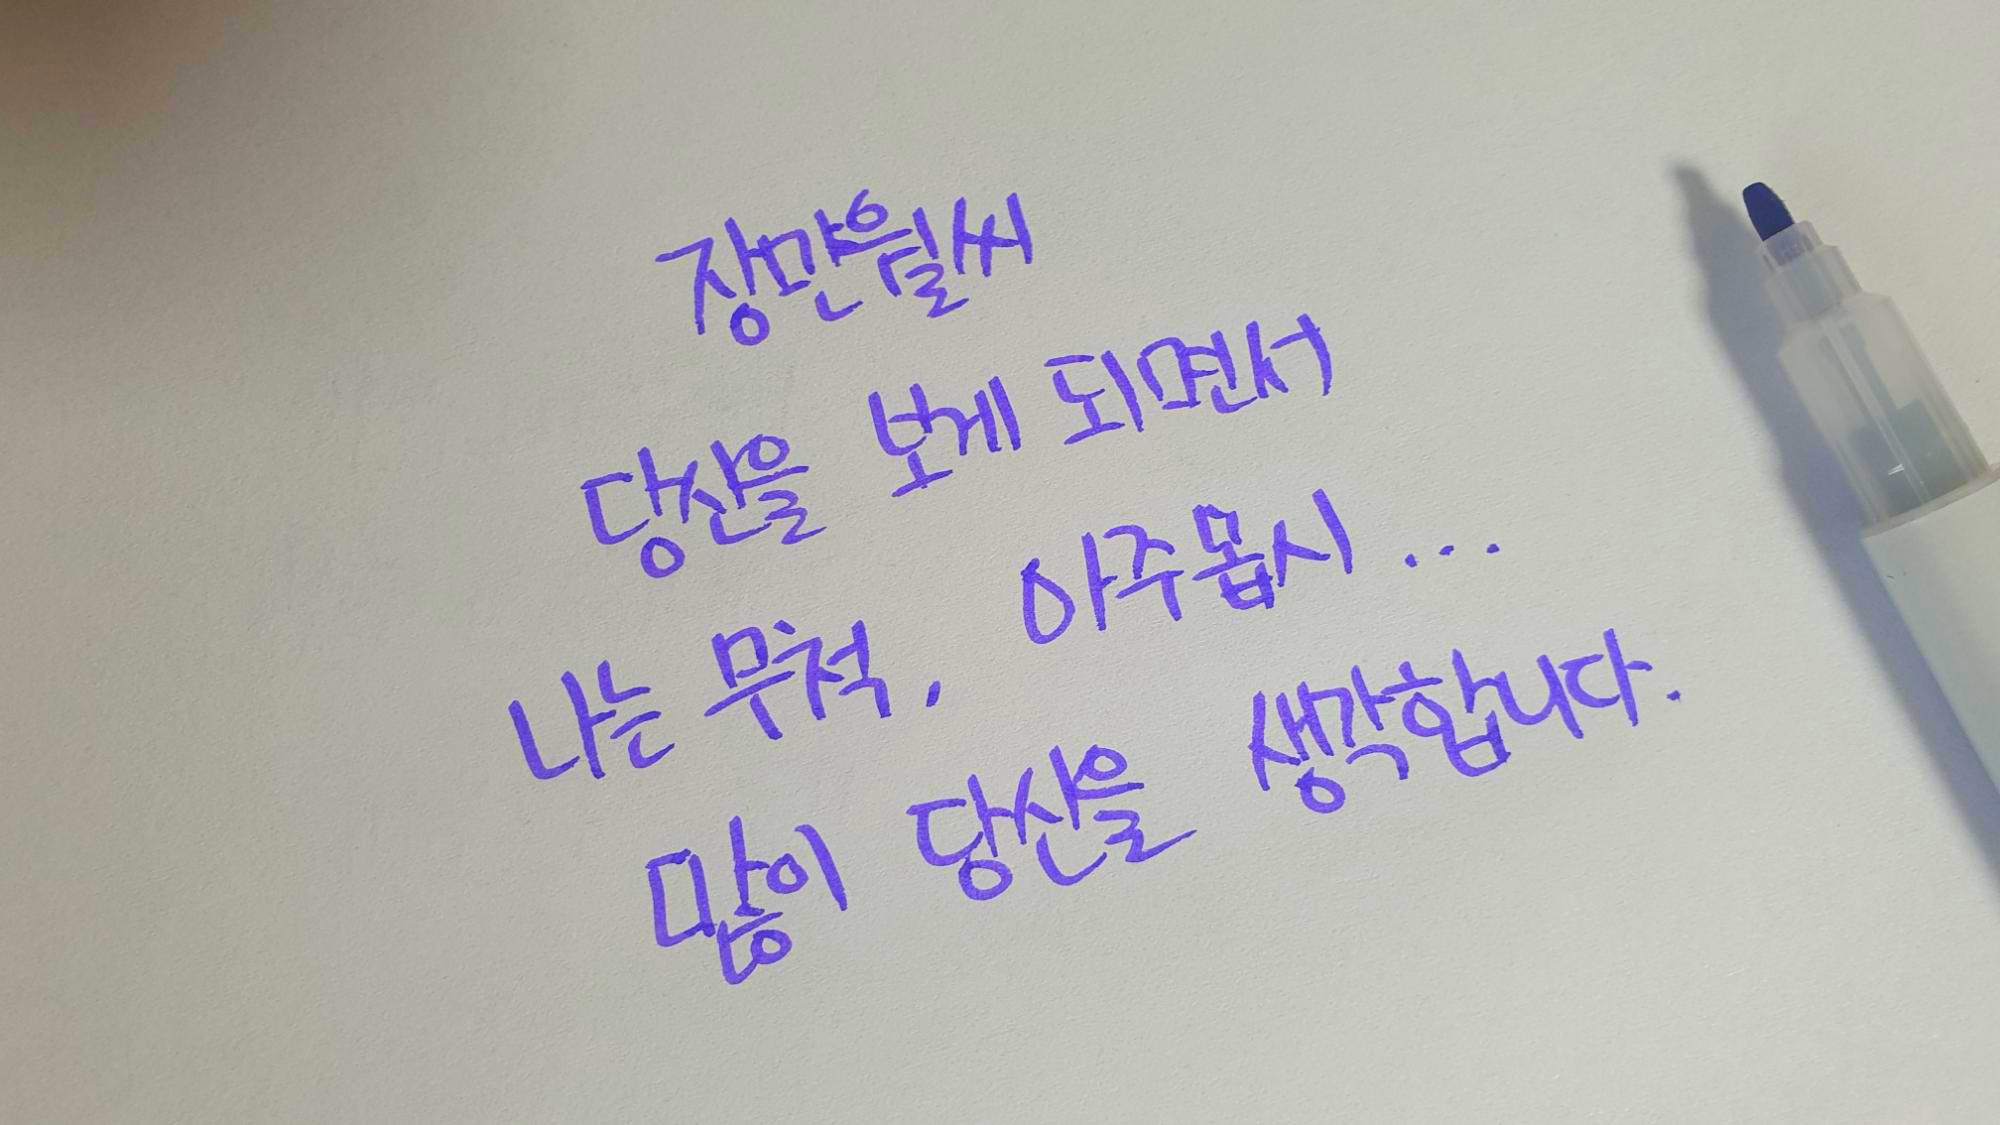 장만월씨
당신을 보게 되면서
나는 무척, 아주몹시...
많이 당신을 생각합니다.